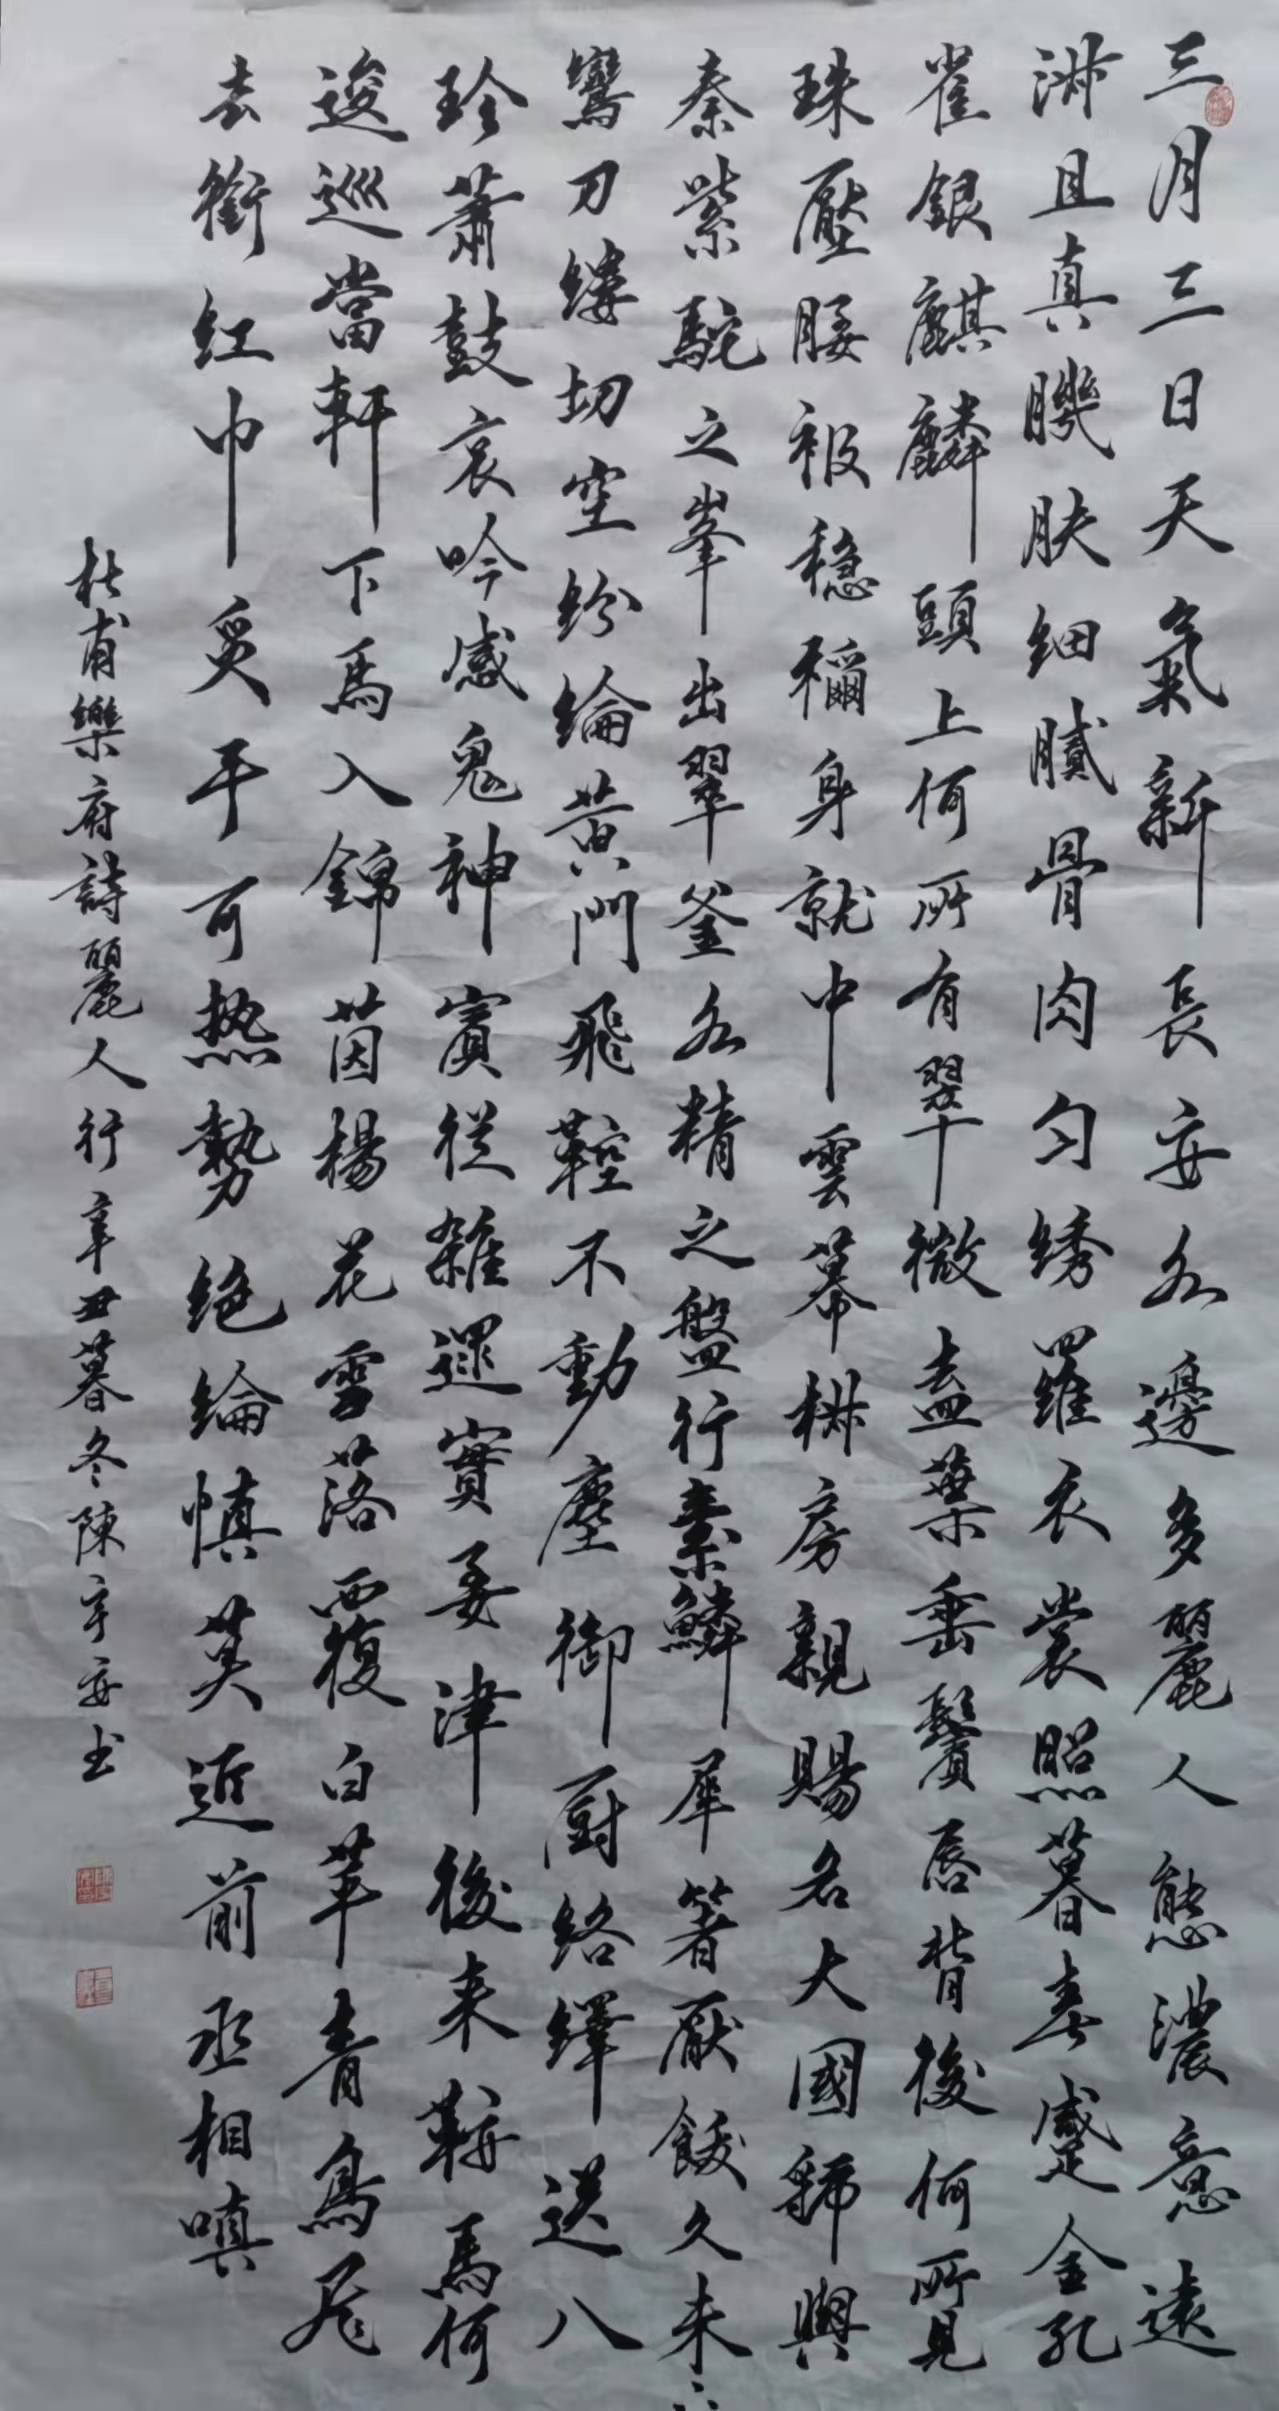 三月三日天氣新長安水邊多麗人態濃意遠
淋且真膿肤细膩骨肉匀绣羅衣裳照暮春蹙金孔
雀銀麒麟頭上何所有翠微盍葉垂鬢唇背後何所見
珠壓腰衱穩稱身就中雲幕椒房親賜名大國虢與
秦紫駝之峯出翠釜水精之盤行素鱗犀箸厭飫久未
鸞刀缕切空纷綸黄門飛鞚不動塵御厨络繹送八
珍蕭鼓哀吟感鬼神賓從雜遝實要津後来鞍馬何
逡巡當軒下馬入錦茵楊花雪落覆白苹青鳥飛
去銜红巾炙手可热勢绝綸慎莫近前丞相嗔
杜甫樂府詩麗人行辛丑暮冬陳宇安书